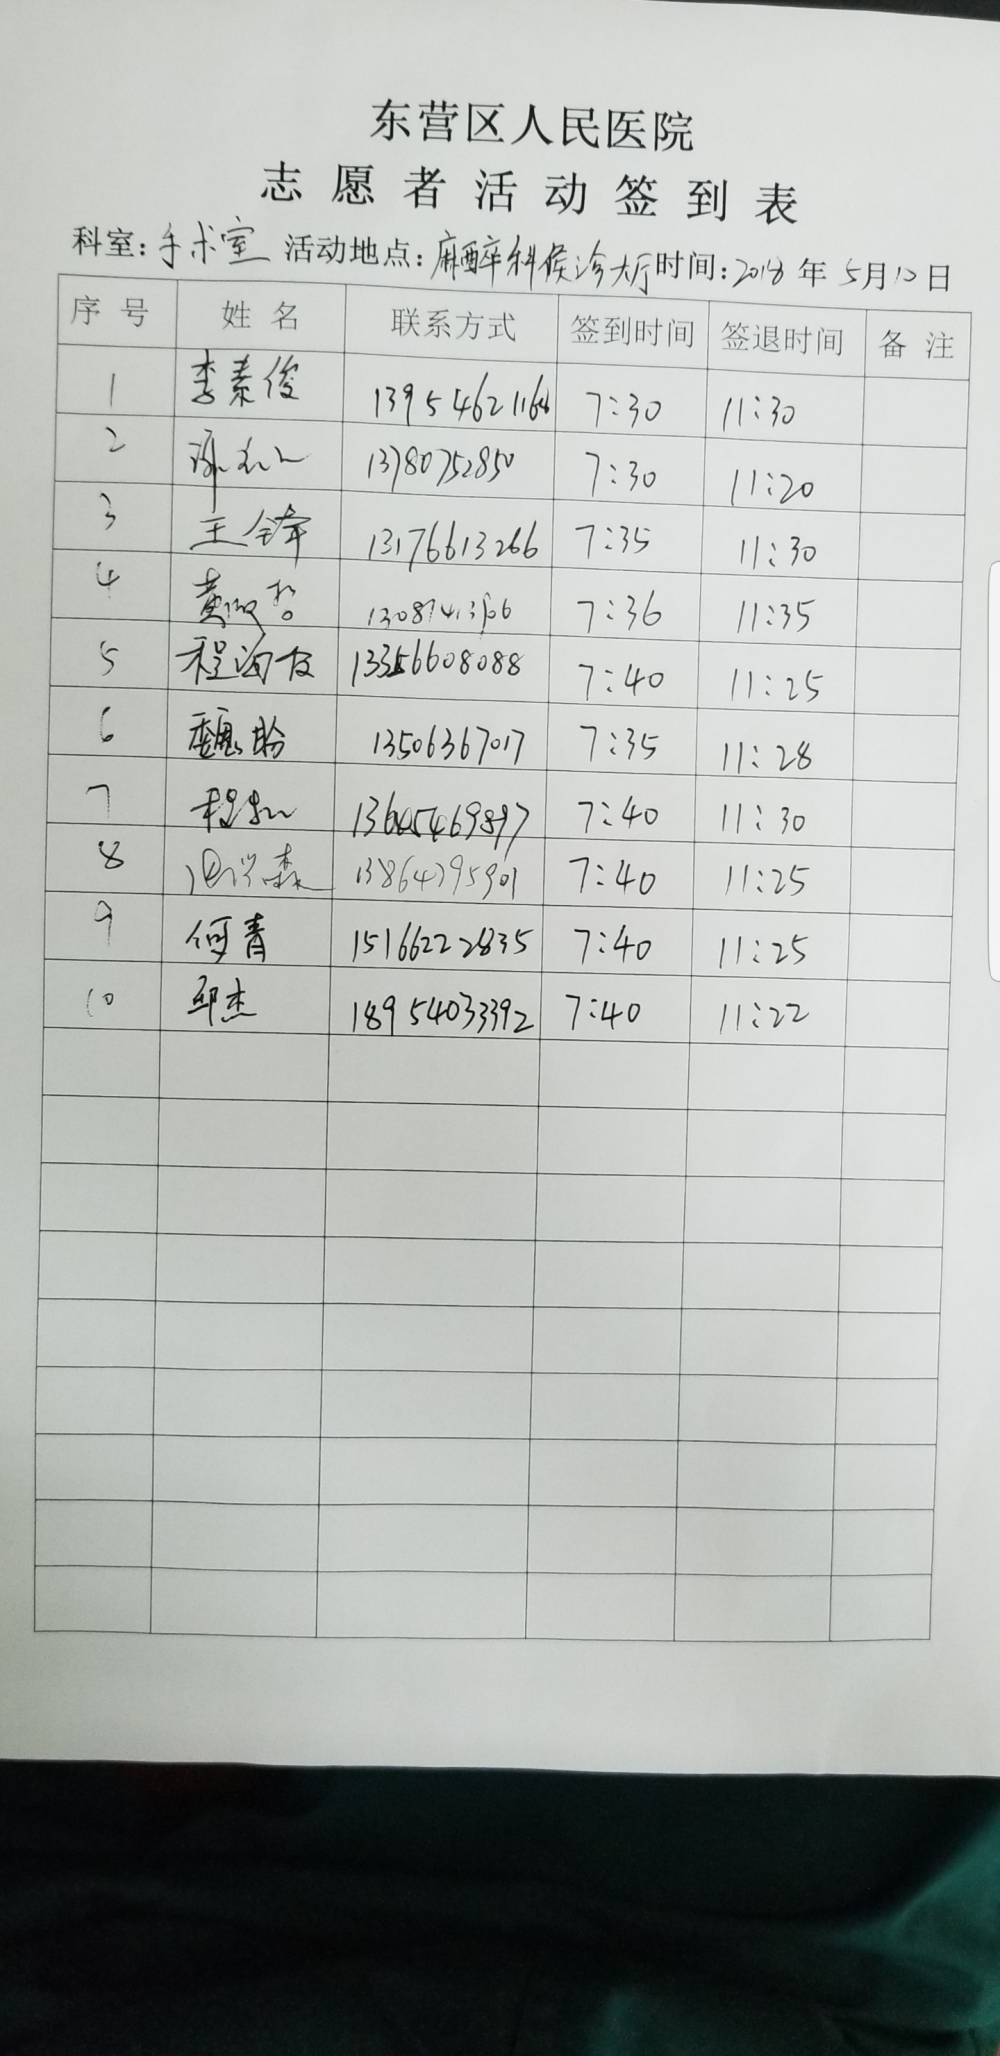 东营区人民医院
志愿者活动签到表
科室:手术室 活动地点:麻醉科侯诊大厅时间:2018年5月12日
序号 姓名 联系方式 签到时间 签退时间 备注
1 李素俊 7:30 11:30
2 13780752850 7:30 11:20
3 王全锋 13176613266 7:35 11:30
4 黄 7:36 11:35
5 程海 13356608088 7:40 11:25
6 魏盼 13506367017 7:35 11:28
7 程 7:40 11:30
8 森 13864795901 7:40 11:25
9 何青 15166222835 7:40 11:25
10 邱杰 18954033392 7:40 11:22